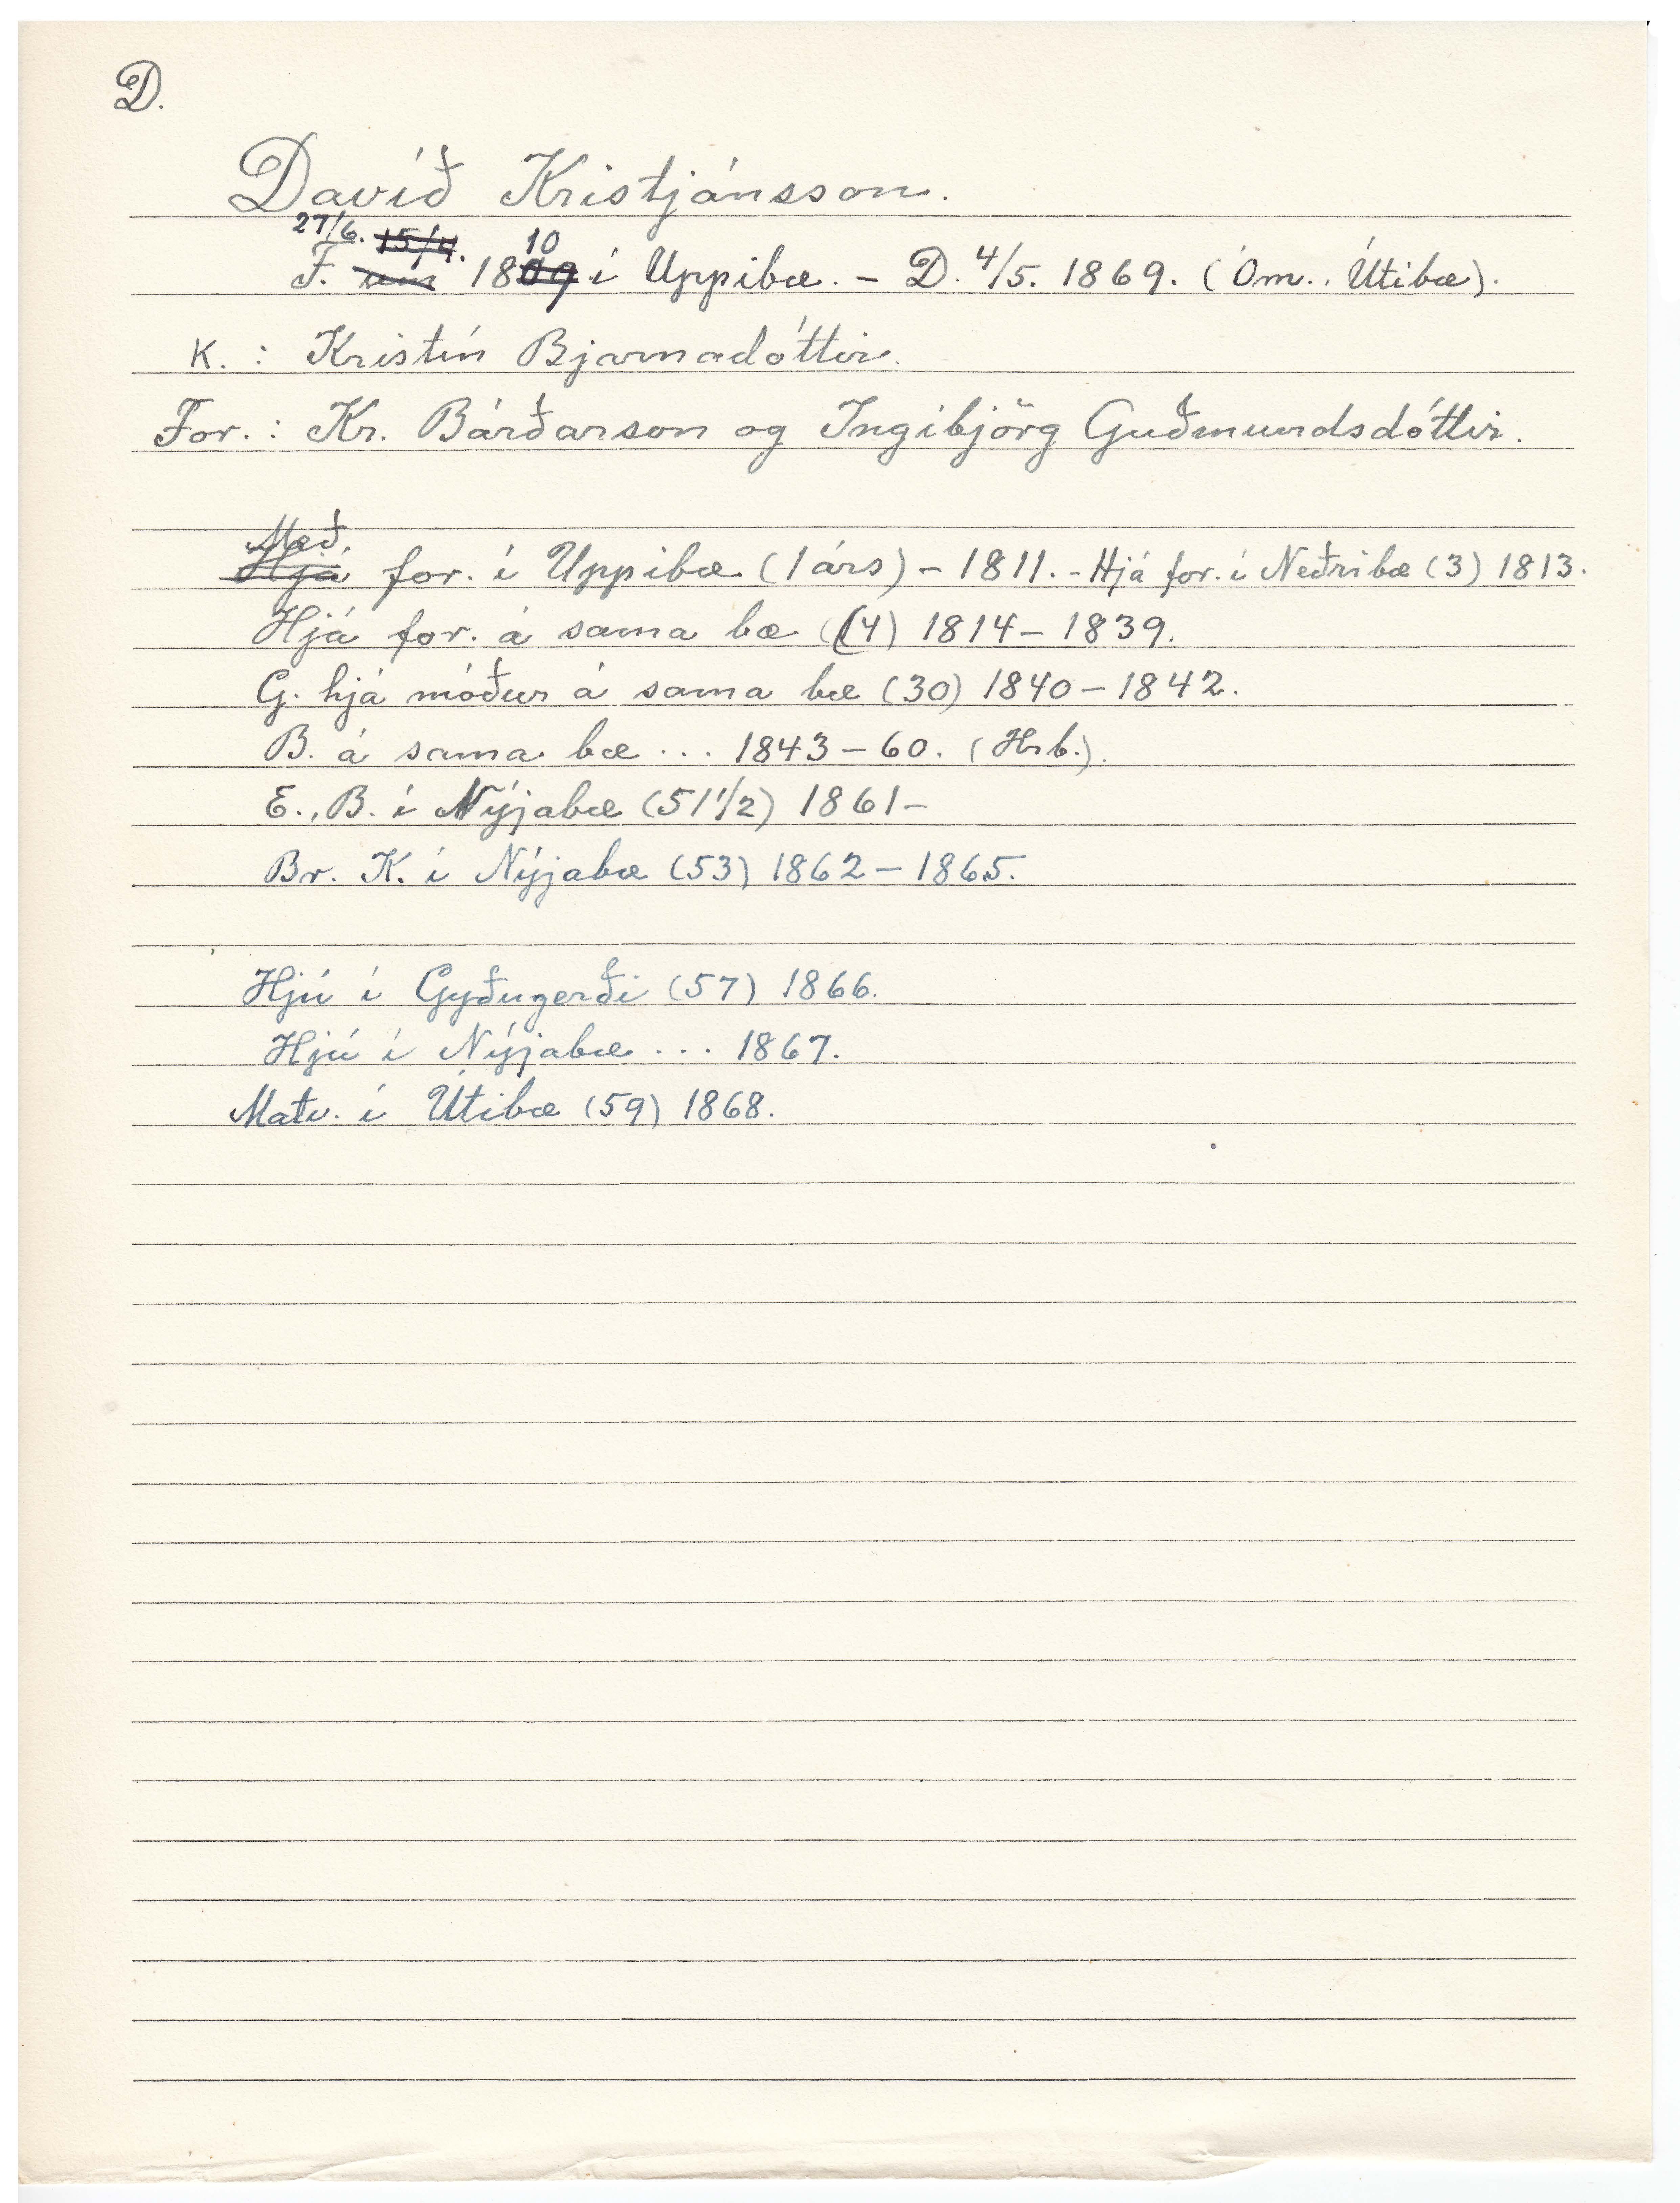 D.
Davíð Kristjánsson.
27/6. 15/4. 10
F. 1809 í Uppibæ. – D. 4/5. 1869. (Óm., Útibæ).
K. : Kristín Bjarnadóttir.
For. : Kr. Bárðarson og Ingibjörg Guðmundsdóttir.
Með
Hjá for. í Uppibæ (1 árs) – 1811. - Hjá for. í Neðribæ (3) 1813.
Hjá for. á sama bæ (4) 1814 – 1839.
G. hjá móður á sama bæ (30) 1840 – 1842.
B. á sama bæ ... 1843 – 60. (Hrb.).
E., B. í Nýjabæ (51 1/2) 1861 –
Br. K. í Nýjabæ (53) 1862 – 1865.
Hjú í Gyðugerði (57) 1866.
Hjú í Nýjabæ ... 1867.
Matv. í Útibæ (59) 1868.